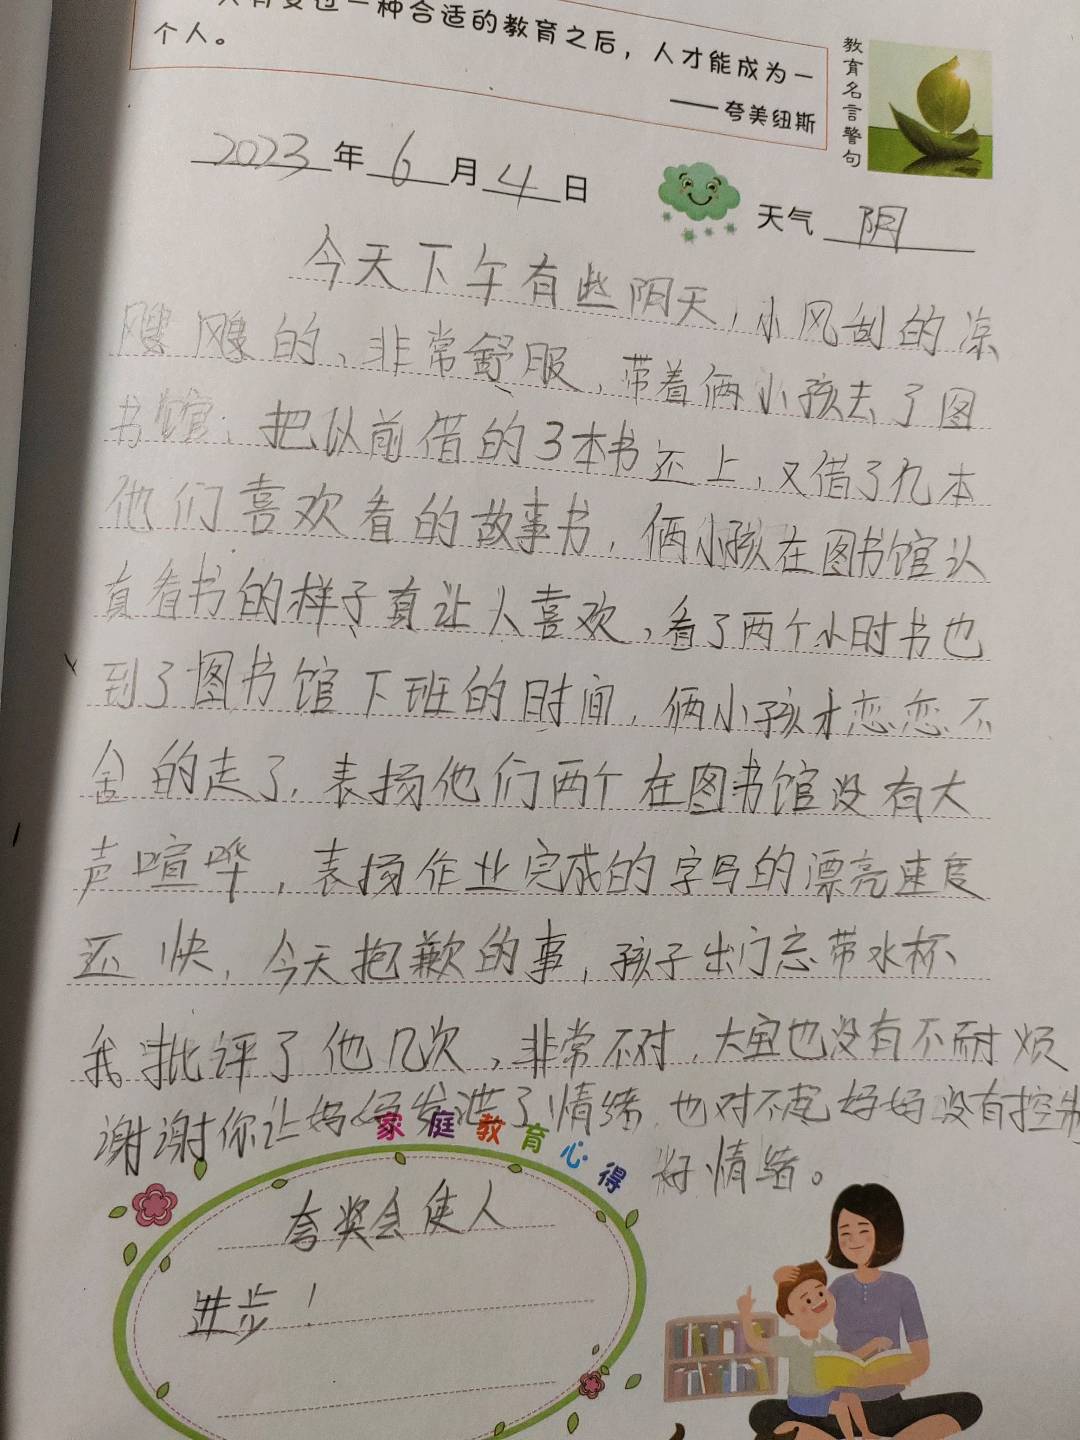 种合适的教育之后，人才能成为一
个人。
——夸美纽斯
教育名言警句
2023年6月4日
天气 阴
今天下午有些阴天，小风刮的凉
飕飕的、非常舒服、带着俩小孩去了图
书馆，把以前借的3本书还上，又借了九本
他们喜欢看的故事书，俩小孩在图书馆认
真看书的样子真让人喜欢，看了两个小时书也
到了图书馆下班的时间，俩小孩才恋恋不
舍的走了，表扬他们两个在图书馆没有大
声喧哗，表扬作业完成的字写的漂亮速度
还快，今天抱歉的事，孩子出门忘带水杯、
我批评了他几次，非常不对，大宝也没有不耐烦
谢谢你让妈妈发泄了情绪，也对不起妈妈没有控制
好情绪。
家庭教育心得
夸奖会使人
进步！